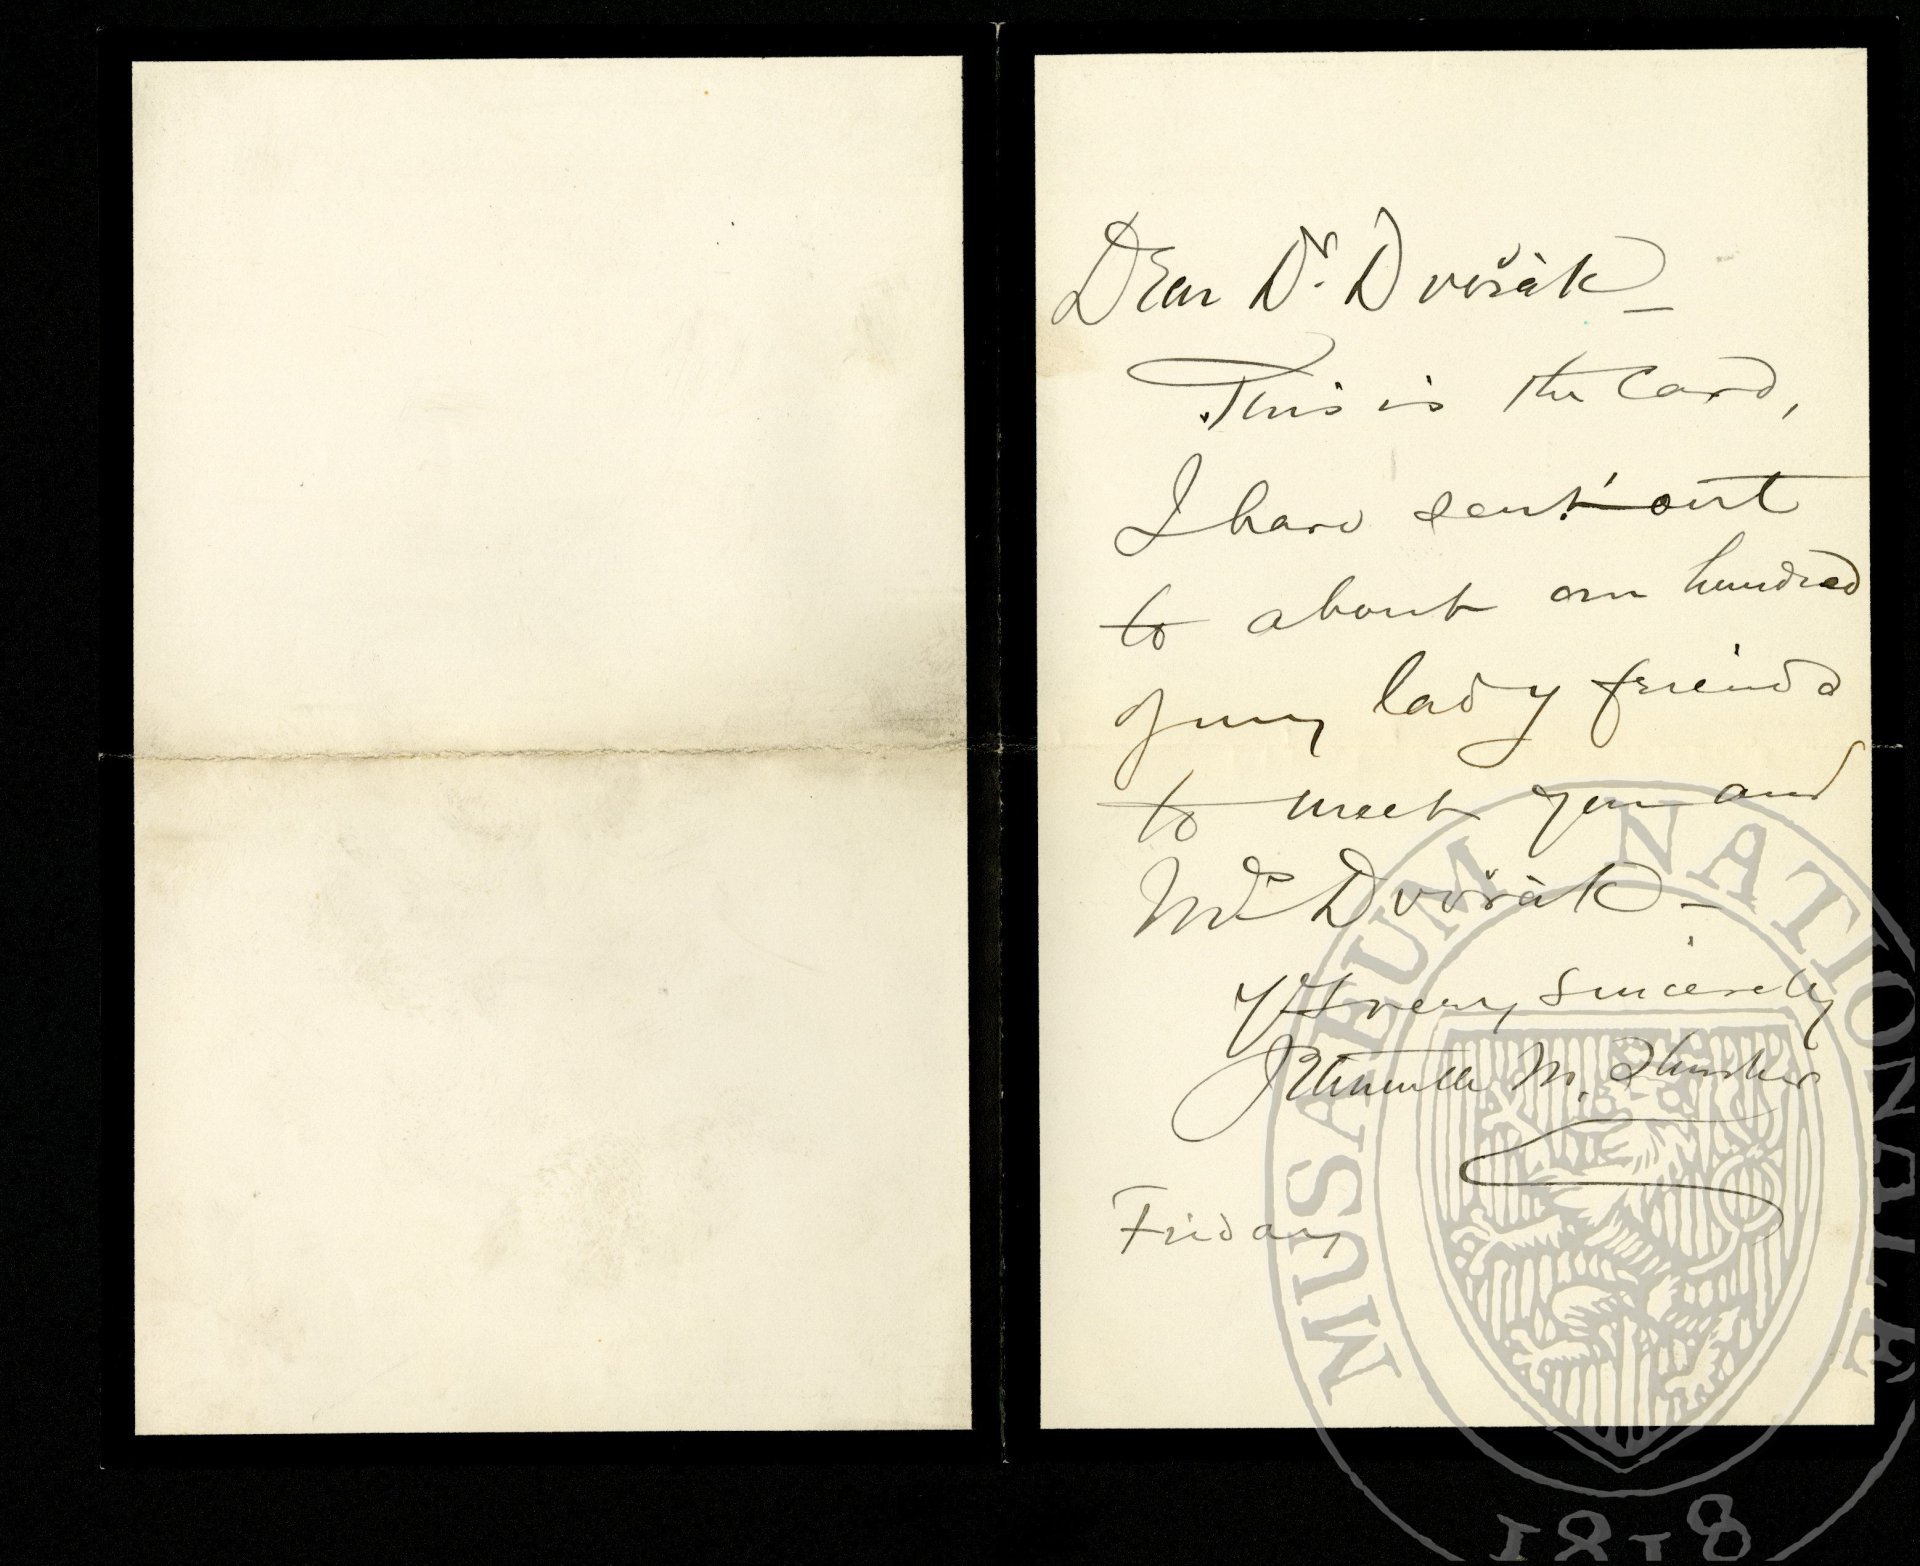 Dear Dr. Dvořák —
This is the Card,
I have sent out
to about one hundred
of my lady friends
to meet you and
Mrs Dvořák —
Yrs very sincerely
Jeannette M. Thurber
Friday
MUSAEUM NATIONALE
1818